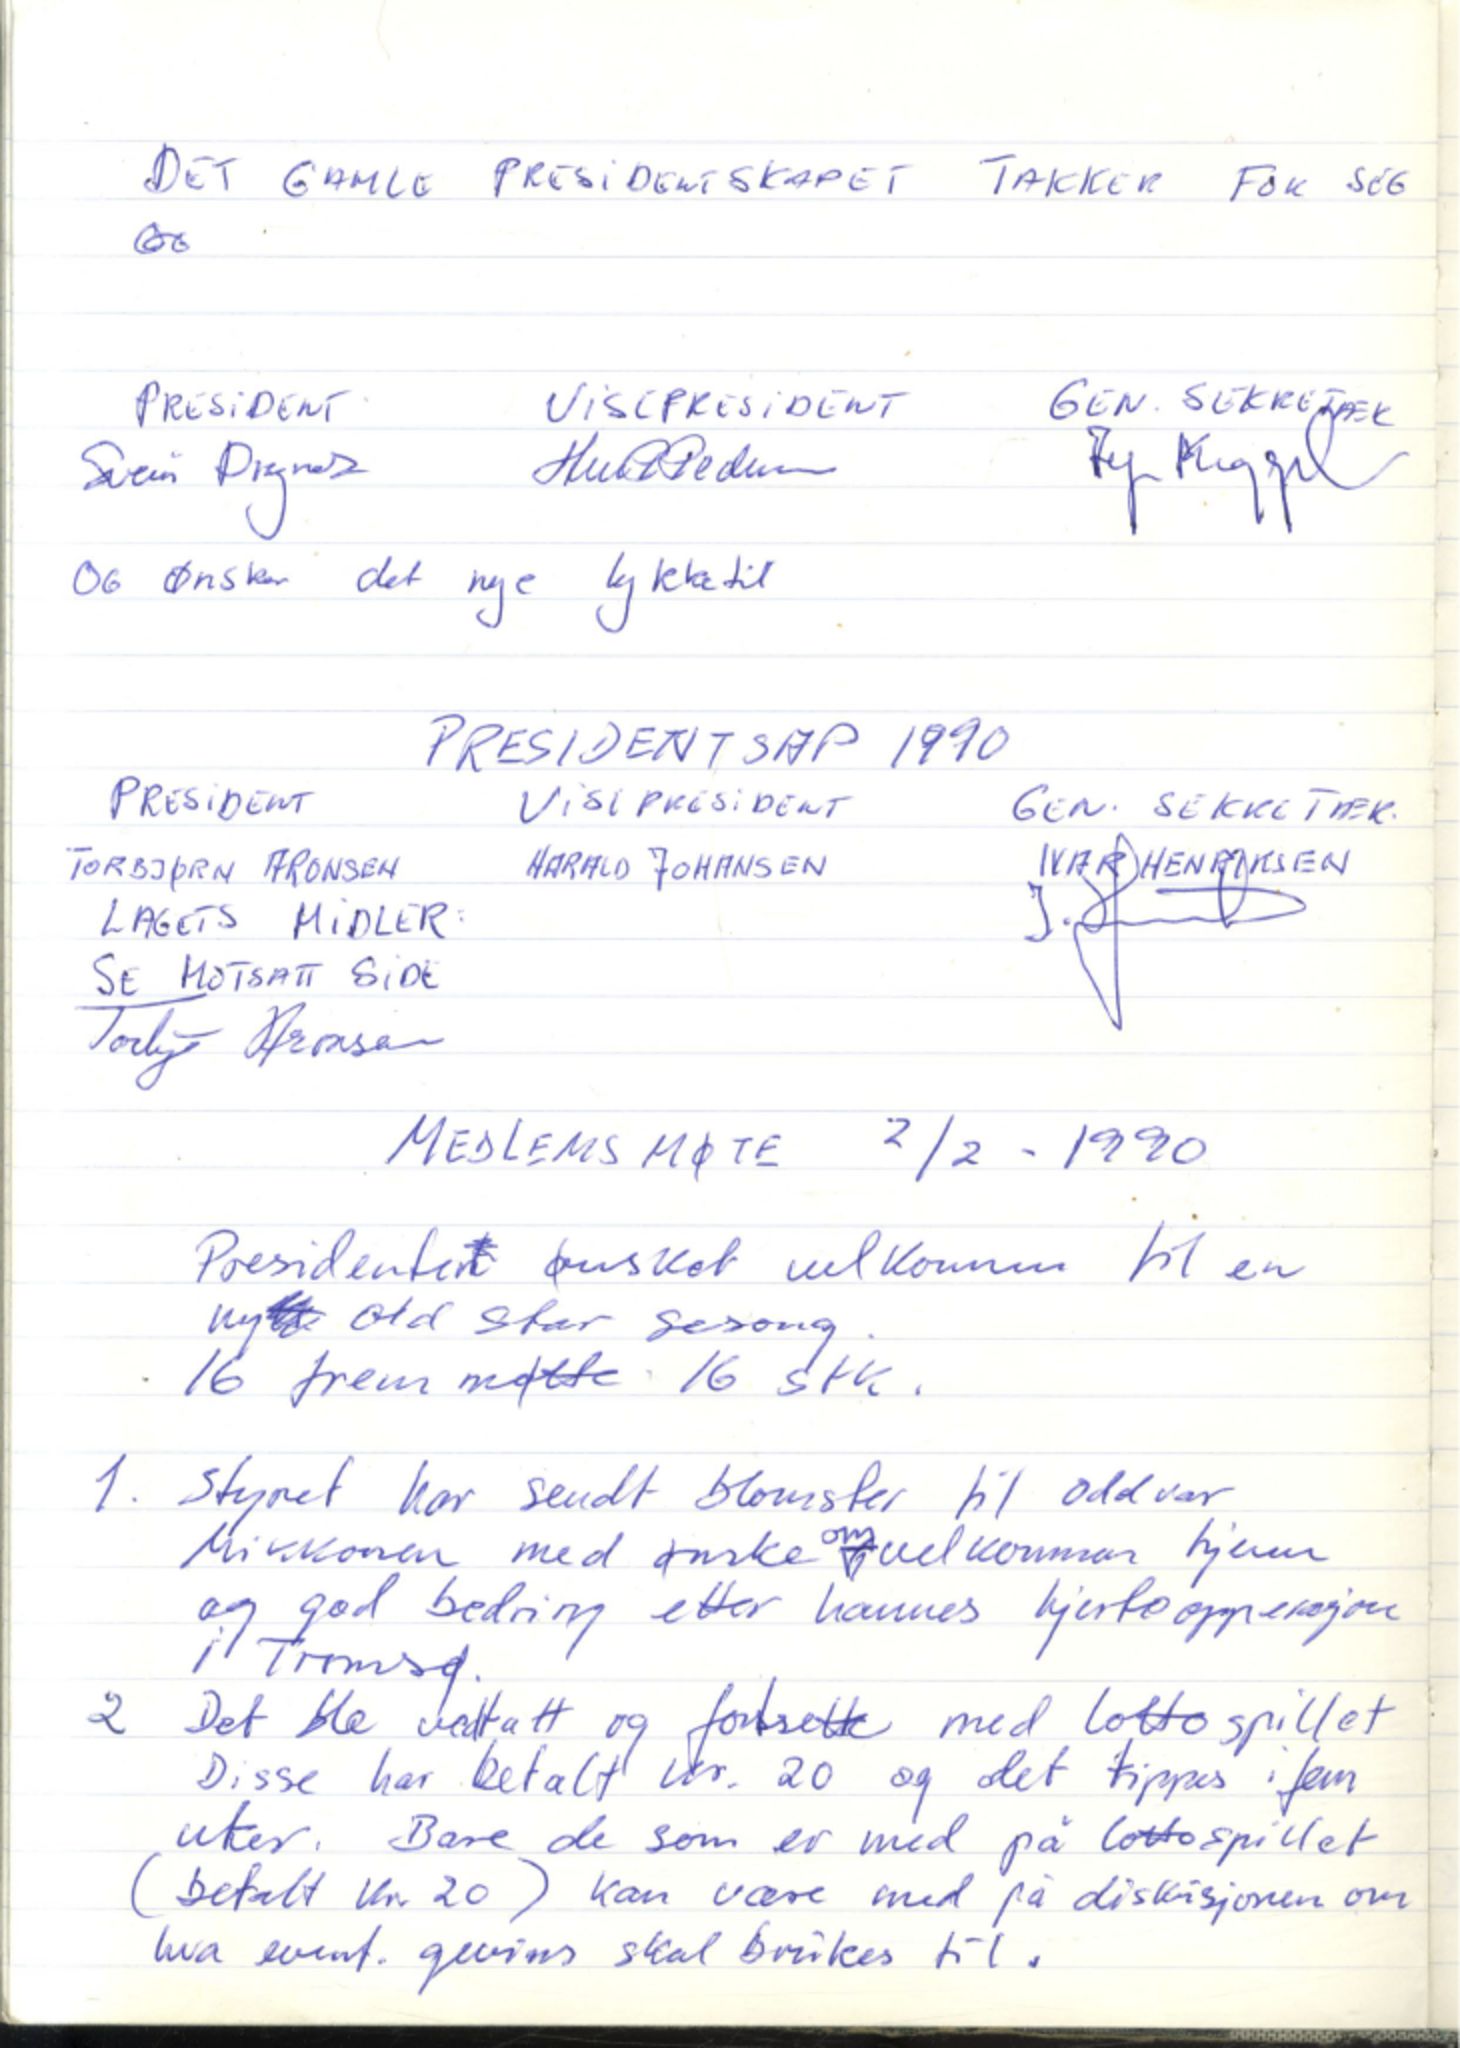 DET GAMLE PRESIDENTSKAPET TAKKER FOR SEG
OG
PRESIDENT VISEPRESIDENT GEN. SEKRETÆR
Svein
OG ønsker det nye lykketil
PRESIDENTSAP 1990
PRESIDENT VISEPRESIDENT GEN. SEKRETÆR.
TORBJØRN ARONSEN HARALD JOHANSEN IVAR HENRIKSEN
LAGETS MIDLER:
SE MOTSATT SIDE
Torbjø Aronsen
MEDLEMSMØTE 2/2 - 1990
Presidenten ønsket velkommen til en
ny old star sesong.
16 frem møtte 16 stk.
1. Styret har sendt blomster til Oddvar
Mikkonen med ønske om velkommen hjem
og god bedring etter hannes hjerteopperasjon
i Tromsø.
2 Det ble vedtatt og fortsette med lottospillet
Disse har betalt kr. 20 og det tippes i fem
uker. Bare de som er med på lottospillet
(betalt kr. 20) kan være med på diskusjonen om
hva event. gevins skal brukes til.